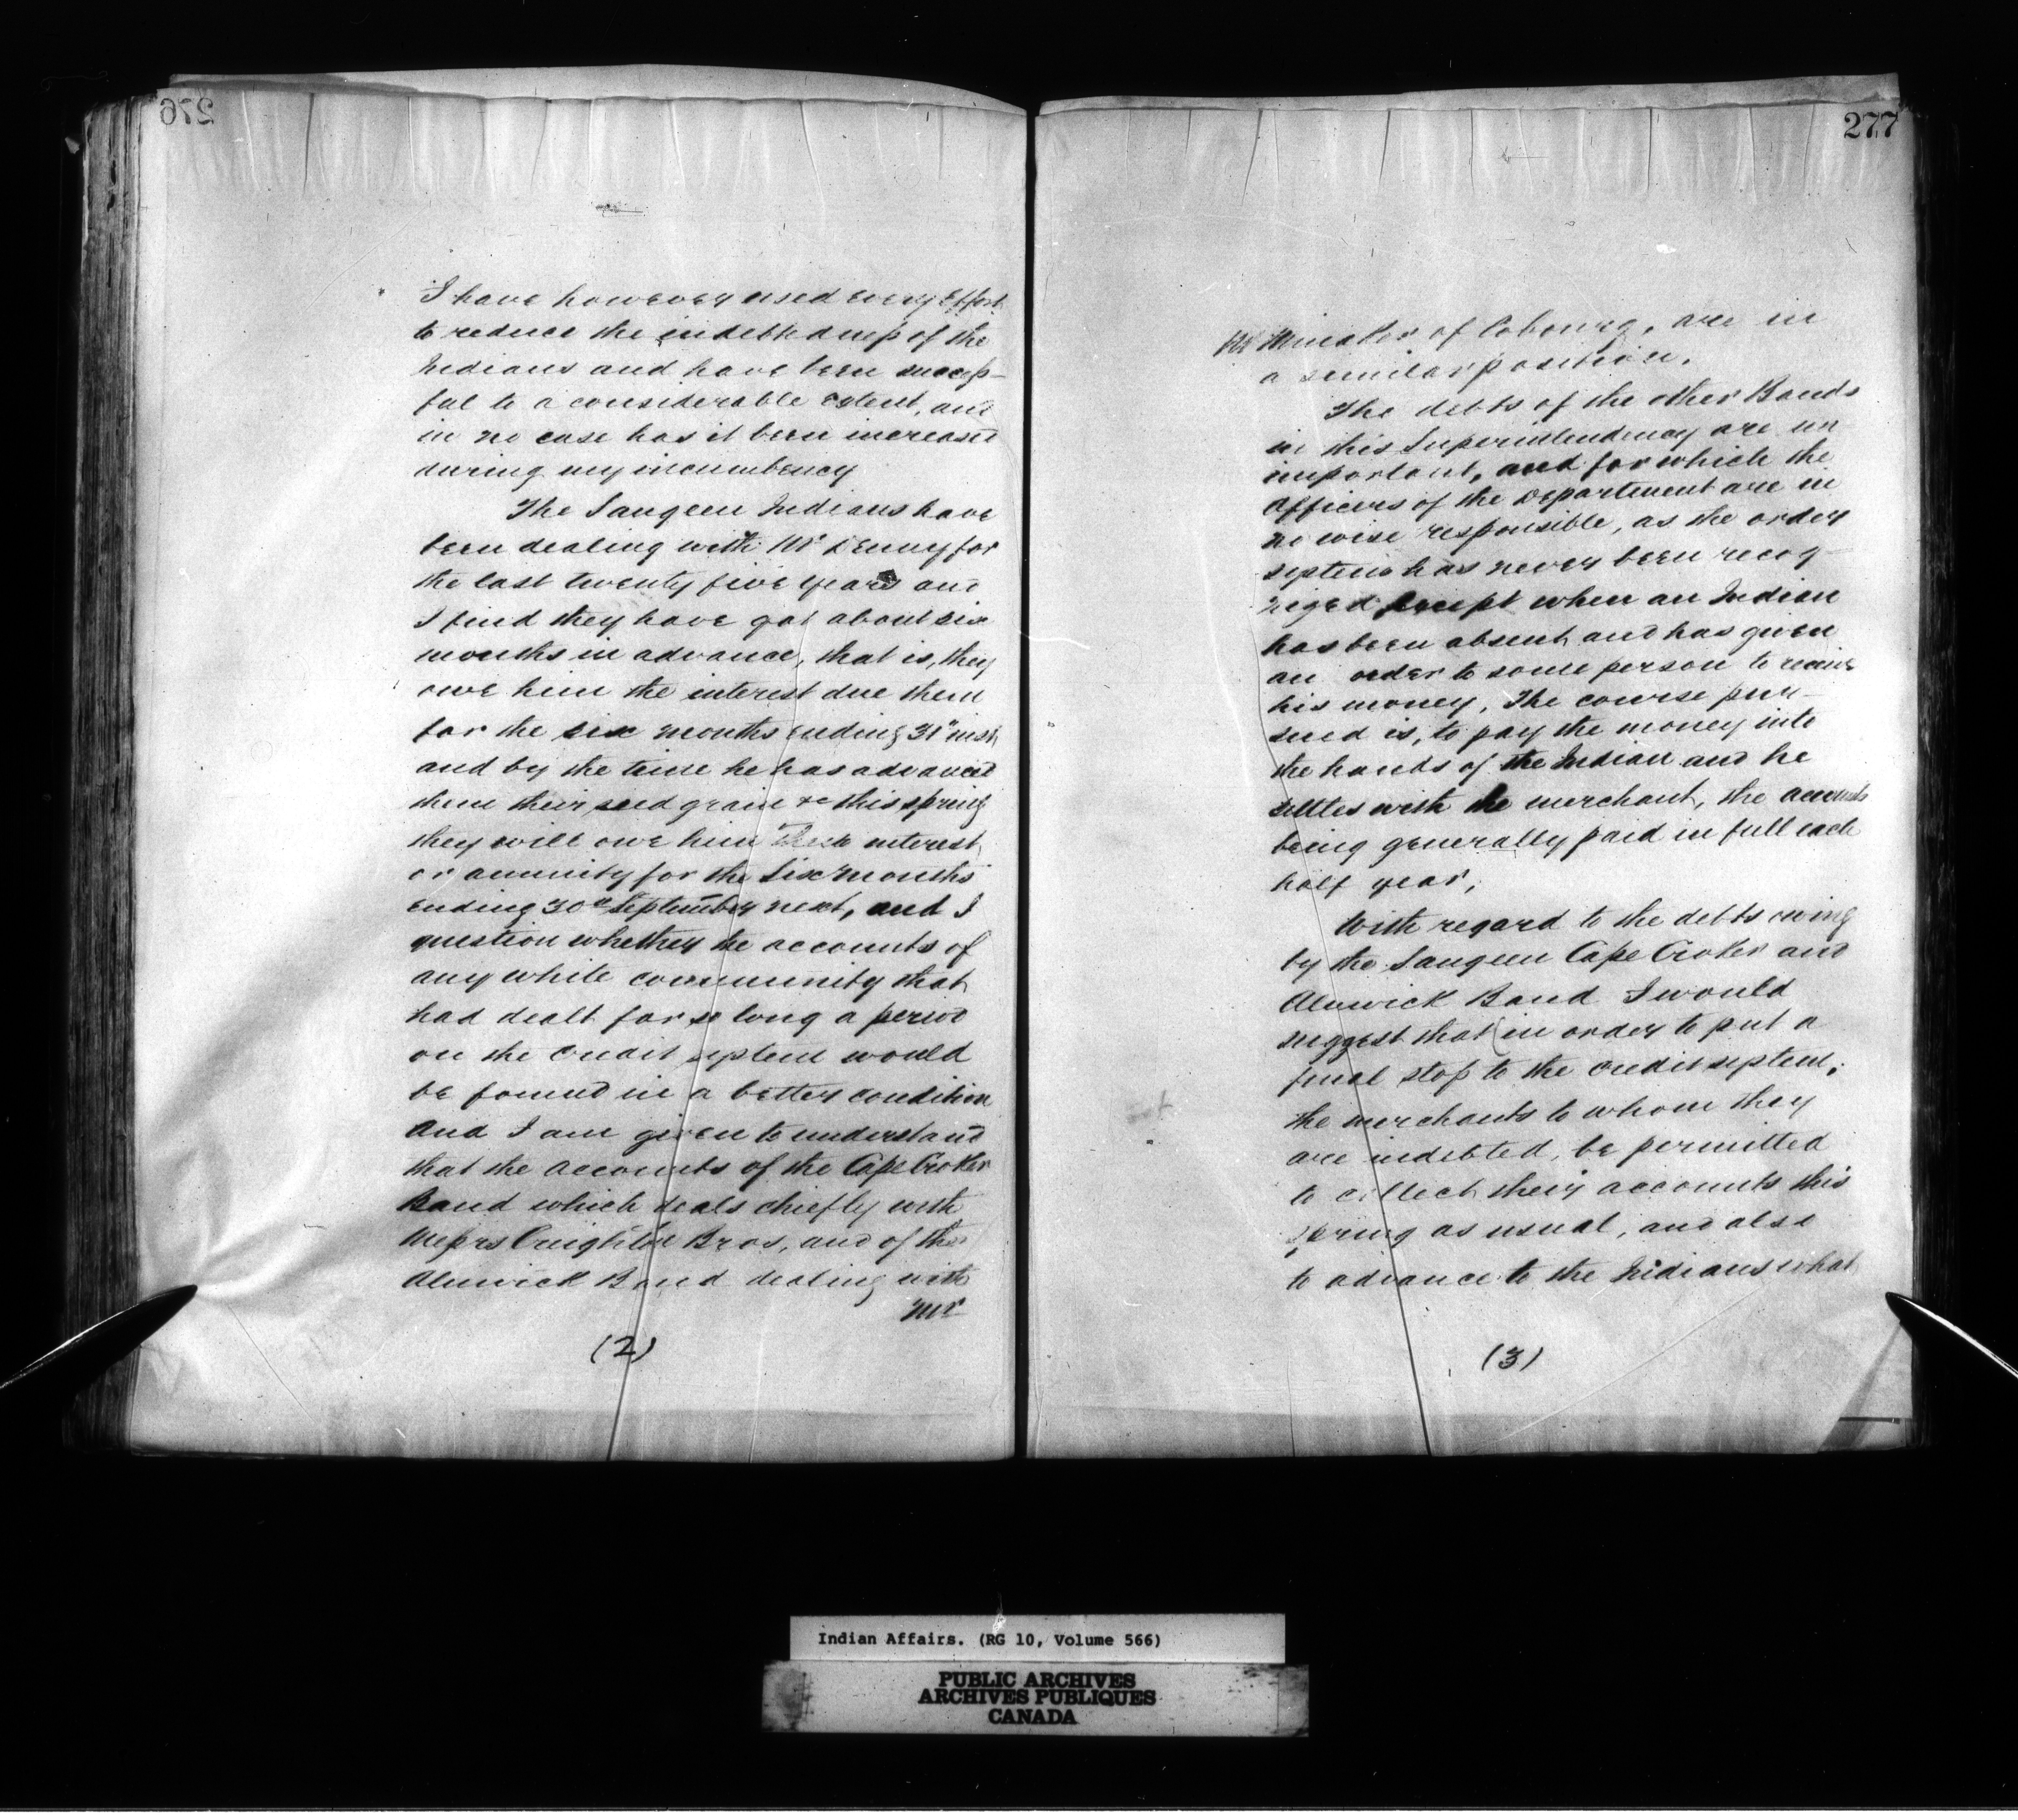 276
I have however used every effort
to reduce the indebtedness of the
Indians and have been success-
ful to a considerable extent, and
in no case has it been increased
during my incumbency
The Saugeen Indians have
been dealing with Mr Denny for
the last twenty five years and
I find they have got about six
months in advance, that is, they
owe him the interest due them
for the six months ending 31st inst,
and by the time he has advanced
them their seed grain &c this spring
they will owe him their interest
or annuity for the six months
ending 30th September next, and I
question whether the accounts of
any white community that
had dealt for so long a period
on the credit system would
be found in a better condition
And I am given to understand
that the accounts of the Cape Croker
Band which deals chiefly with
Messrs Creighton Bros, and of the
Alnwick Band dealing with
Mr
(2)
277
of Cobourg, are in
a similar position.
The debts of the other Bands
in this Superintendency are un
important, and for which the
Officers of the Department are in
no wise responsible, as the order
system has never been recog-
nized except when an Indian
has been absent and has given
an order to some person to receive
his money. The course pur-
sued is, to pay the money into
the hands of the Indian and he
settles with the merchant, the accounts
being generally paid in full each
half year,
With regard to the debts owing
by the Saugeen Cape Croker and
Alnwick Band I would
suggest that (in order to put a
final stop to the credit system,
the merchants to whom they
are indebted, be permitted
to collect their accounts this
spring as usual, and also
to advance to the Indians what
(3)
Indian Affairs. (RG 10, Volume 566)
PUBLIC ARCHIVES
ARCHIVES PUBLIQUES
CANADA